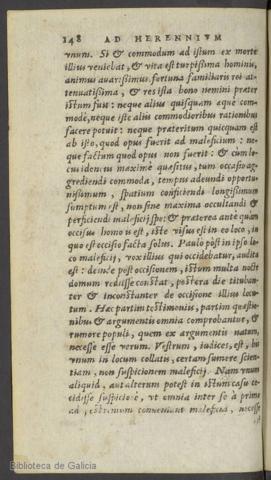 148 AD HERENNIVM
vnum. Si & commodum ad istum ex morte
illius veniebat, & vita est turpissima hominis,
animus auarissimus, fortuna familiaris rei at-
tenuatissima, & res ista bono nemini præter
istum fuit: neque alius quisquam æquè com-
modè, neque iste aliis commodioribus rationibus
facere potuit: neque præteritum quicquam est
ab isto, quod opus fuerit ad maleficium: ne-
que factum quod opus non fuerit: & cùm lo-
cus idoneus maximè quæsitus, tum occasio ag-
grediendi commoda, tempus adeundi opportu-
nissimum, spatium conficiendi longissimum
sumptum est, non sine maxima occultandi &
perficiendi maleficij spe: & præterea antè quàm
occisus homo is est, iste visus est in eo loco, in
quo est occisio facta solus. Paulo pòst in ipso lo-
co maleficij, vox illius qui occidebatur, audita
est: deinde post occisionem, istum multa nocte
domum rediisse constat, postera die titubanter
& inconstanter de occisione illius locu-
tum. Hæc partim testimoniis, partim quæstio-
nibus & argumentis omnia comprobantur, &
rumore populi, quem ex argumentis natum,
necesse est esse verum. Vestrum, iudices, est, his
vnum in locum collatis, certam sumere scien-
tiam, non suspicionem maleficij. Nam vnum
aliquid, aut alterum potest in istum casu ce-
cidisse suspiciosè, vt omnia inter se à primo
ad conueniant maleficia, necesse
est
Biblioteca de Galicia